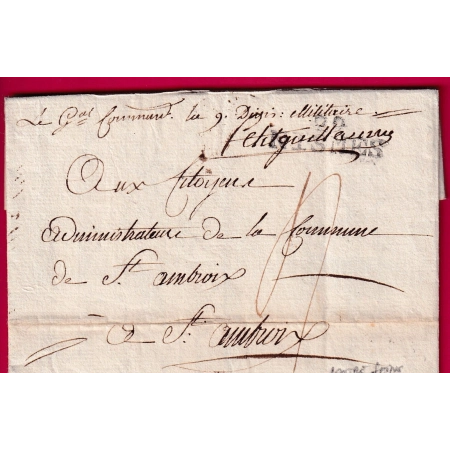 Le G.al Command. la 9. Divis: Militaire
Petitguillaume
Aux Citoyens
administrateurs de la Commune
de St. ambroix
a St. ambroix